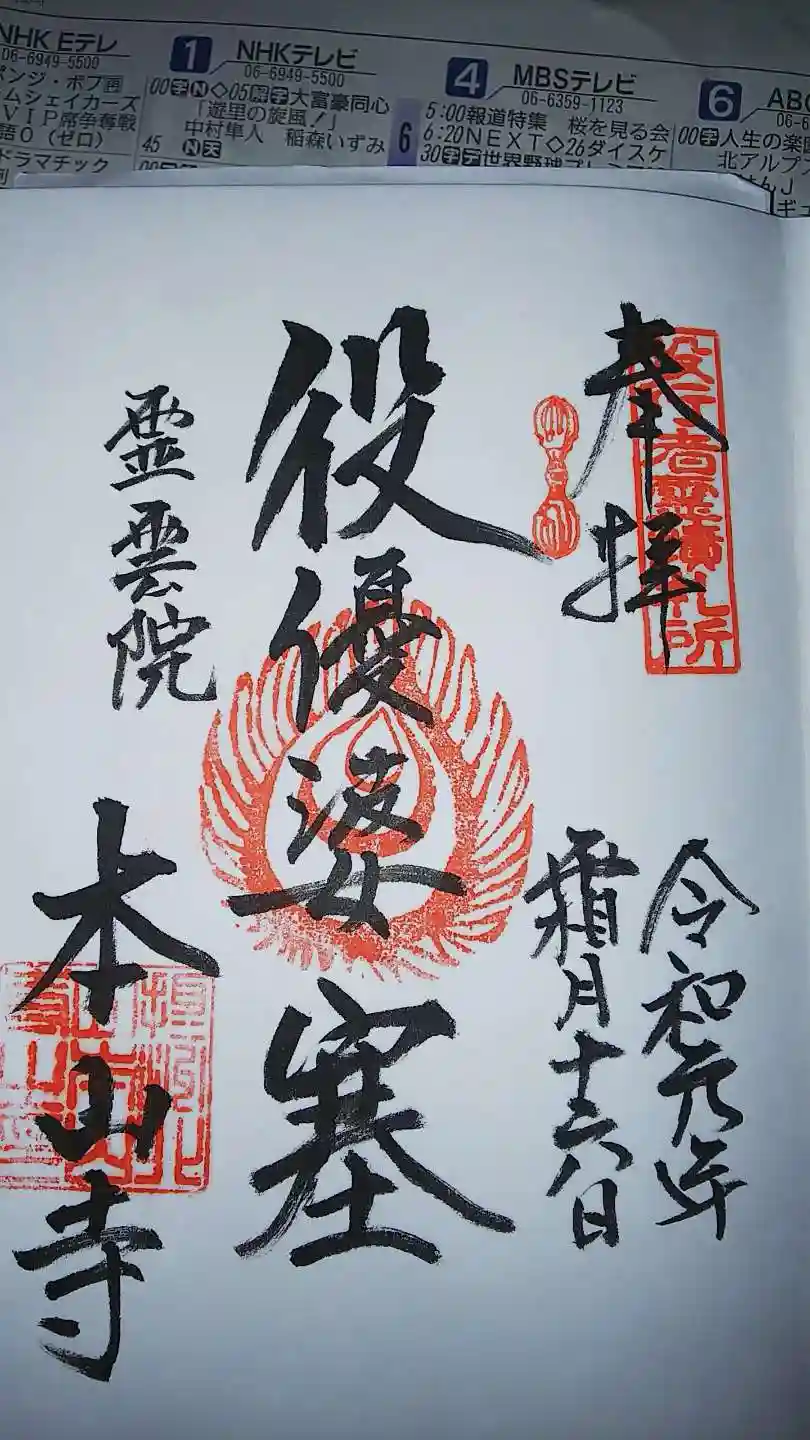 NHK Eテレ
06-6949-5500
1 NHKテレビ
06-6949-5500
00字N◇05解字大富豪同心
「遊里の旋風!」
中村隼人 稲森いずみ
45 N天
ムシェイカーズ
VIP席争奪戦
語0(ゼロ)
ドラマチック
6
4 MBSテレビ
06-6359-1123
5:00報道特集 桜を見る会
6:20NEXT◇26ダイスケ
30字デ世界野球プレミア12
6 ABC
00字人生の楽園
北アルプス
奉拝
役行者霊蹟札所
令和元年
霜月十六日
役優婆塞
霊雲院
本山寺